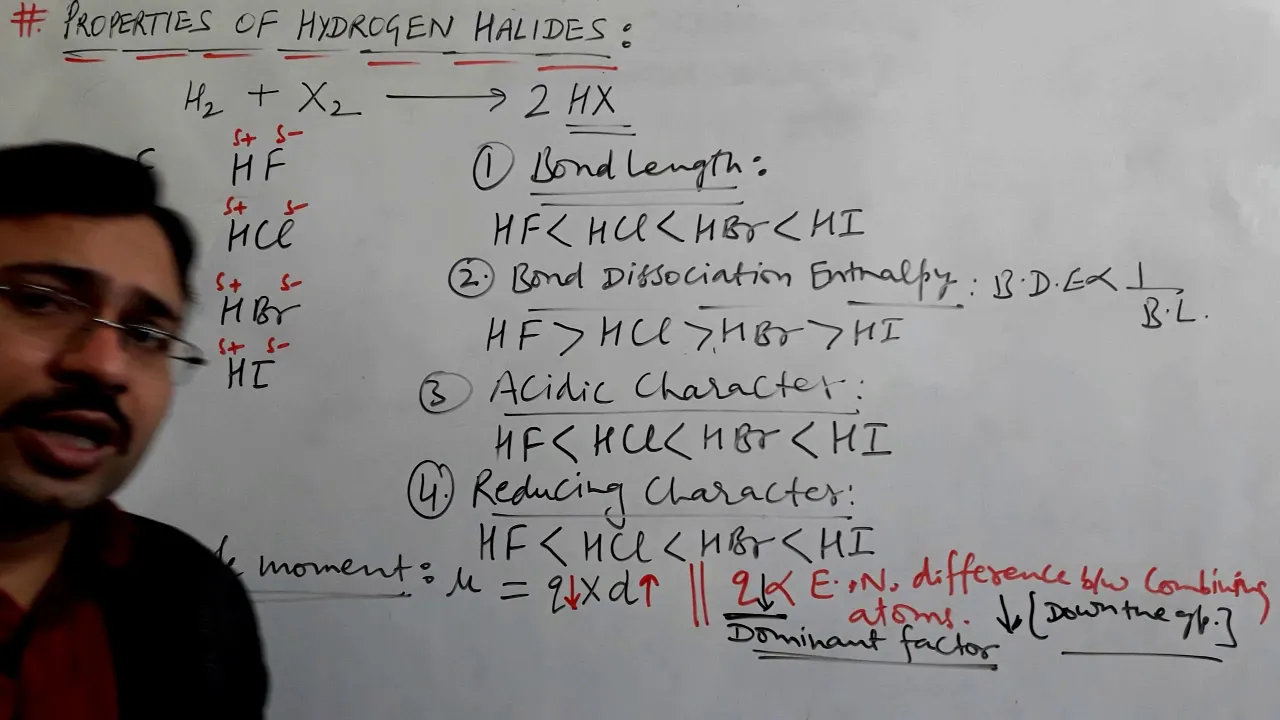 # PROPERTIES OF HYDROGEN HALIDES:
H₂ + X₂ ⟶ 2 HX
δ+ δ-
HF
δ+ δ-
HCl
δ+ δ-
HBr
δ+ δ-
HI
① Bond Length:
HF < HCl < HBr < HI
②. Bond Dissociation Enthalpy: B.D.E ∝ 1/B.L.
HF > HCl > HBr > HI
③ Acidic Character:
HF < HCl < HBr < HI
④. Reducing Character:
HF < HCl < HBr < HI
moment: μ = q↓ x d↑ || q↓ ∝ E.N. difference b/w Combining atoms. ↓ [Down the gp.]
Dominant factor